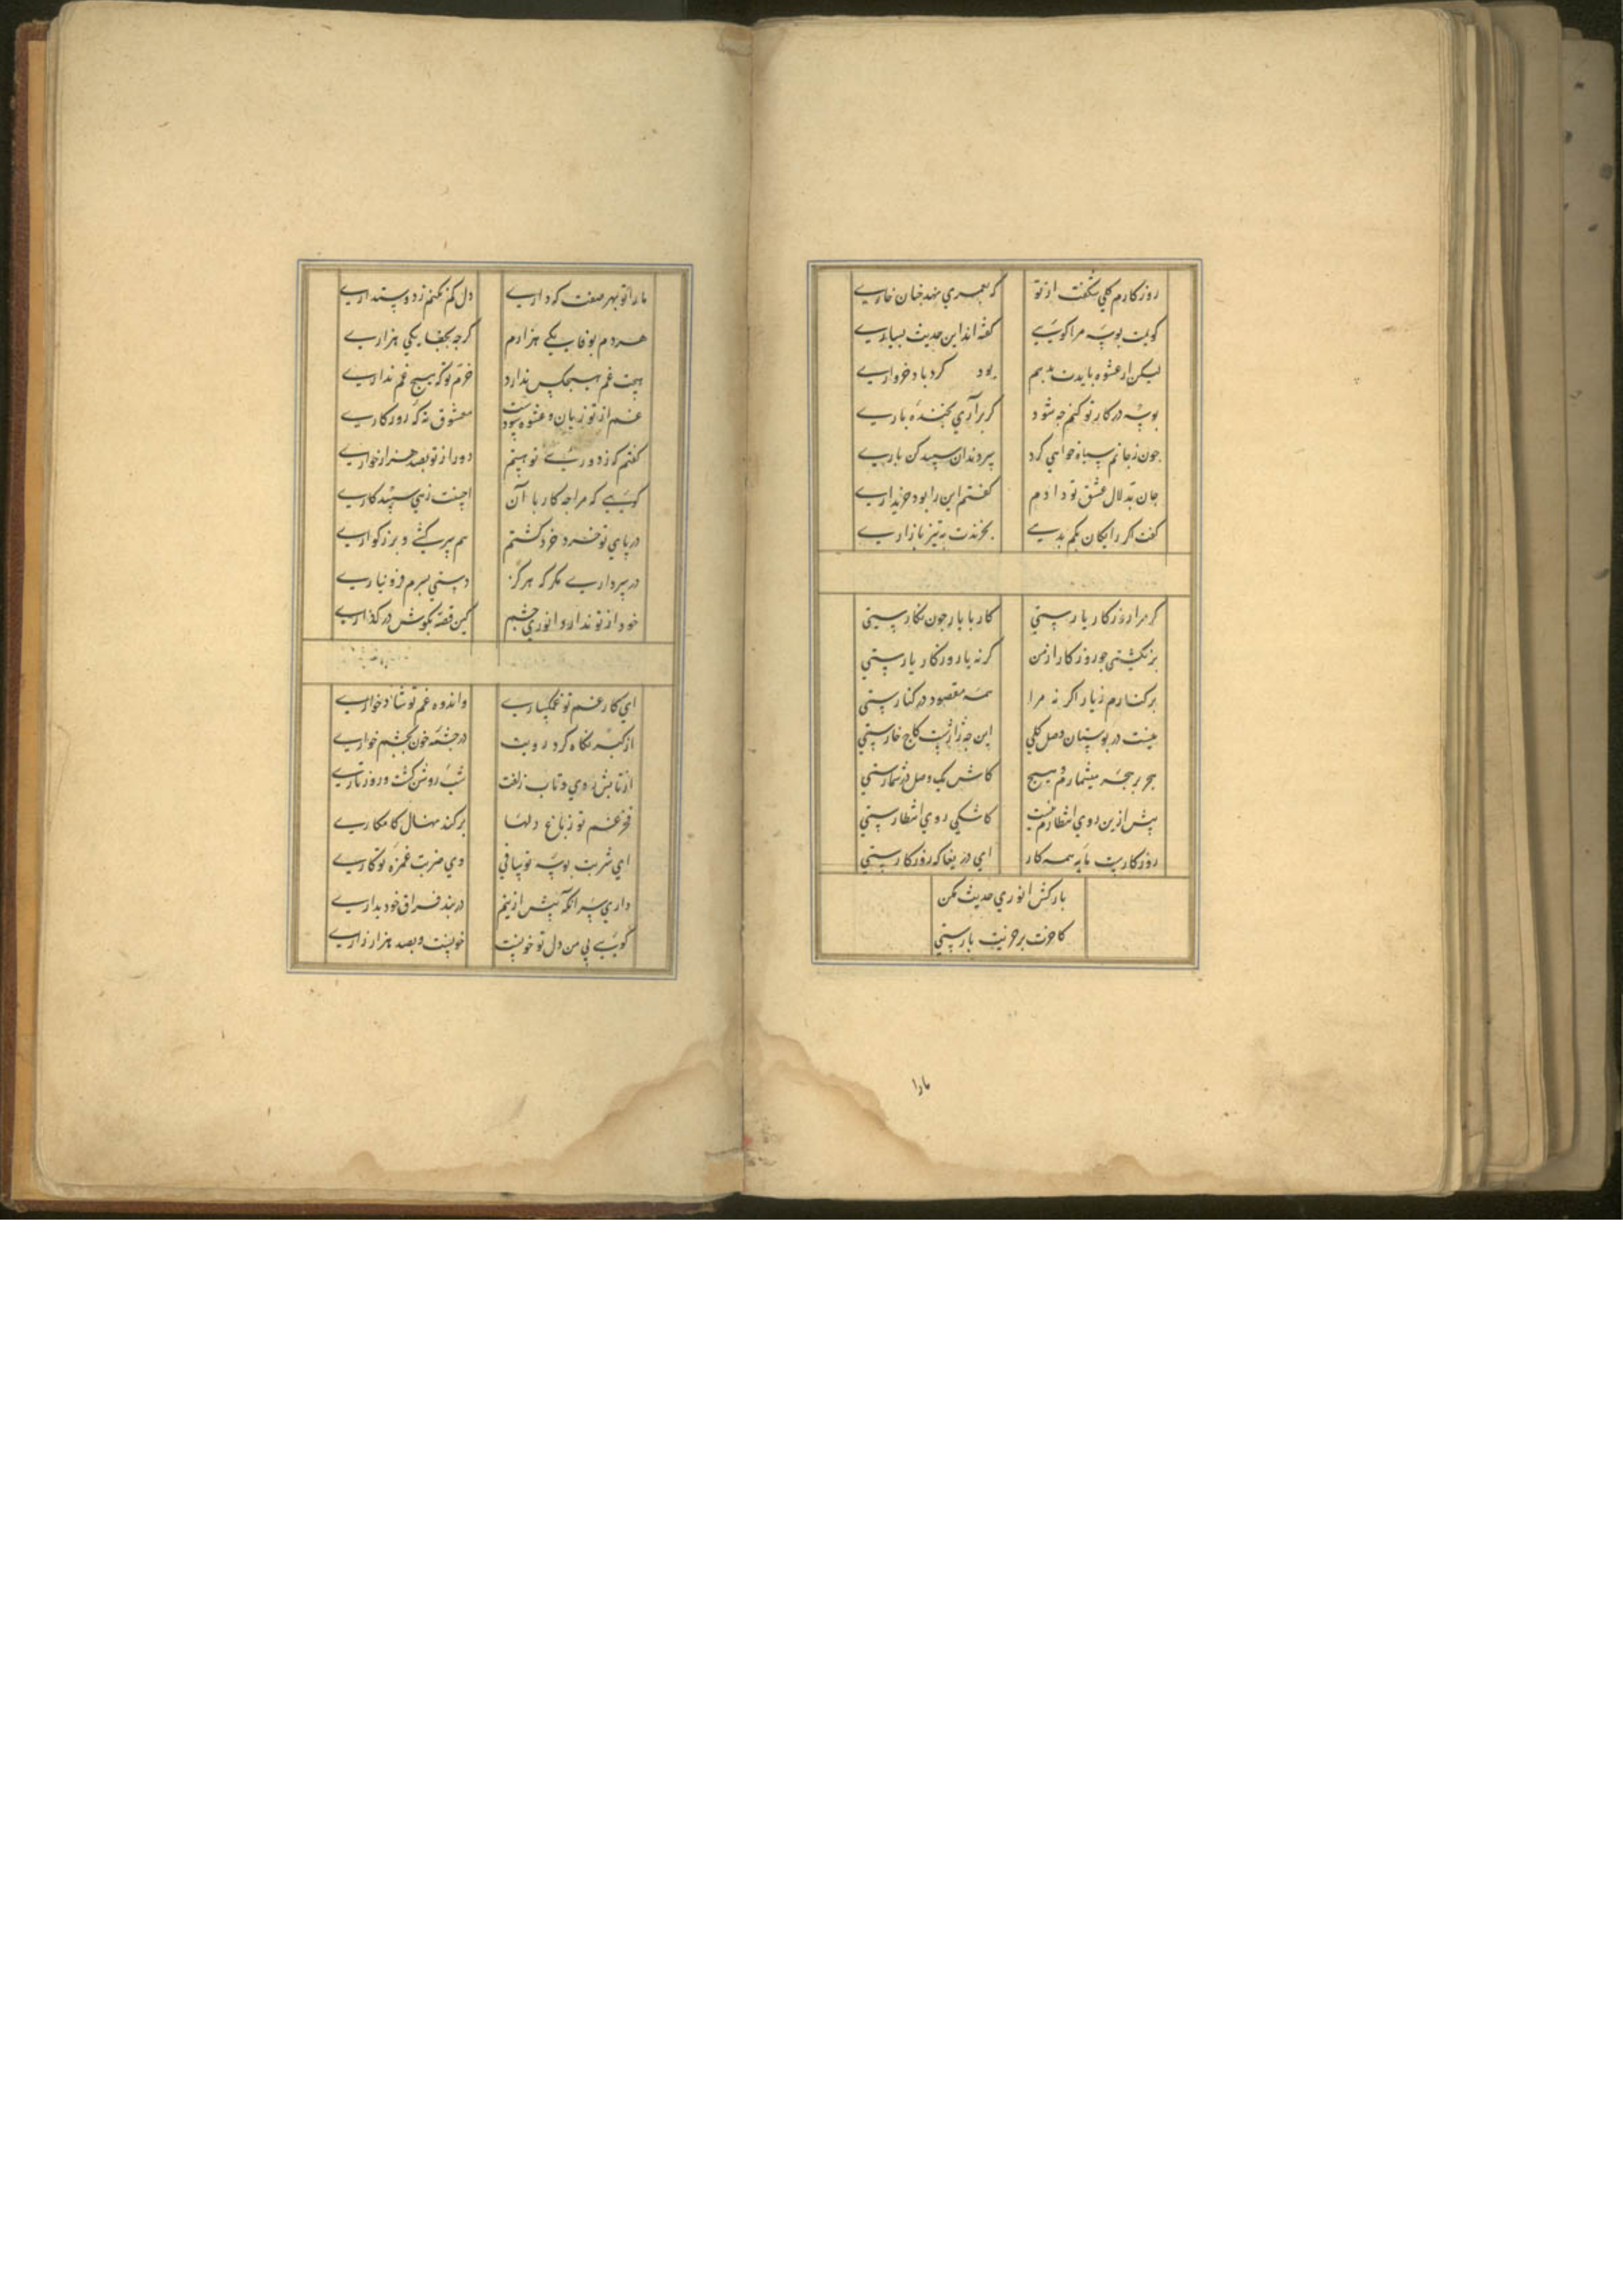 روزکارم کلی شکفت از تو کر بعمری نهد جنان خاری
کویمت بوسه مرا کویی کفته اند این حدیث بسیاری
لیکن از عشوه بایدت بدهم بود کرد باد خرواری
بوسه در کار تو کنم جه شود کر برآری بخنده باری
جون زجانم سیاه خواهی کرد سر دندان سپید کن باری
جان بدلال عشق تو دادم کفتم این را بود خریداری
کفت اکر رایکان بکم بدهی بخرندت به تیز بازاری
کر مرا روزکار یارستی کار با یار جون نکارستی
برنکشتی جو روزکار از من کر نه یار روزکار یارستی
برکنارم زیار اکر نه مرا همه مقصود در کنارستی
نیست در بوستان وصل کلی این جه ژاژست کاج خارستی
هجر بر هجر میشمارم و هیچ کاش یک وصل در شمارستی
پیش ازین روی انتظارم نیست کاشکی روی انتظارستی
روزکارست مایه همه کار ای دریغا که روزکارستی
بارکش انوری حدیث مکن
کاخرت بر خریت بارستی
مارا
مارا تو بهر صفت که داری دل کم نکنم ز دوستداری
هردم بوفا یکی هزارم کرجه بجفا یکی هزاری
هیجت غم هیجکس ندارد خرم تو که هیج غم نداری
عمر از تو زیان و عشوه سودست معشوق نه که روزکاری
کفتم که ز دوریی تو بینم دور از تو بصد هزار خواری
کویی که مرا جه کار با آن احسنت زهی سپید کاری
در پای تو خرد خرد کشتم هم سر کشی و بزرکواری
در سر داری مکر که هرکز دستی بسرم فرو نیاری
خود از تو ندارد انوری جشم کین قصه بکوش در کذاری
ای کار غم تو غمکساری واندوه غم تو شادخواری
از کبر نکاه کرد رویت در جشمه خون بجشم خواری
از تابش روی و تاب زلفت شب روشن کشت و روز تاری
غم تو ز باغ دلها برکند نهال کامکاری
ای شربت بوسه تو شافی وی ضربت غمزه تو کاری
داری سر آنکه بیش ازینم در بند فراق خود بداری
کویی بی من دل تو خوشست خوشست و بصد هزار زاری